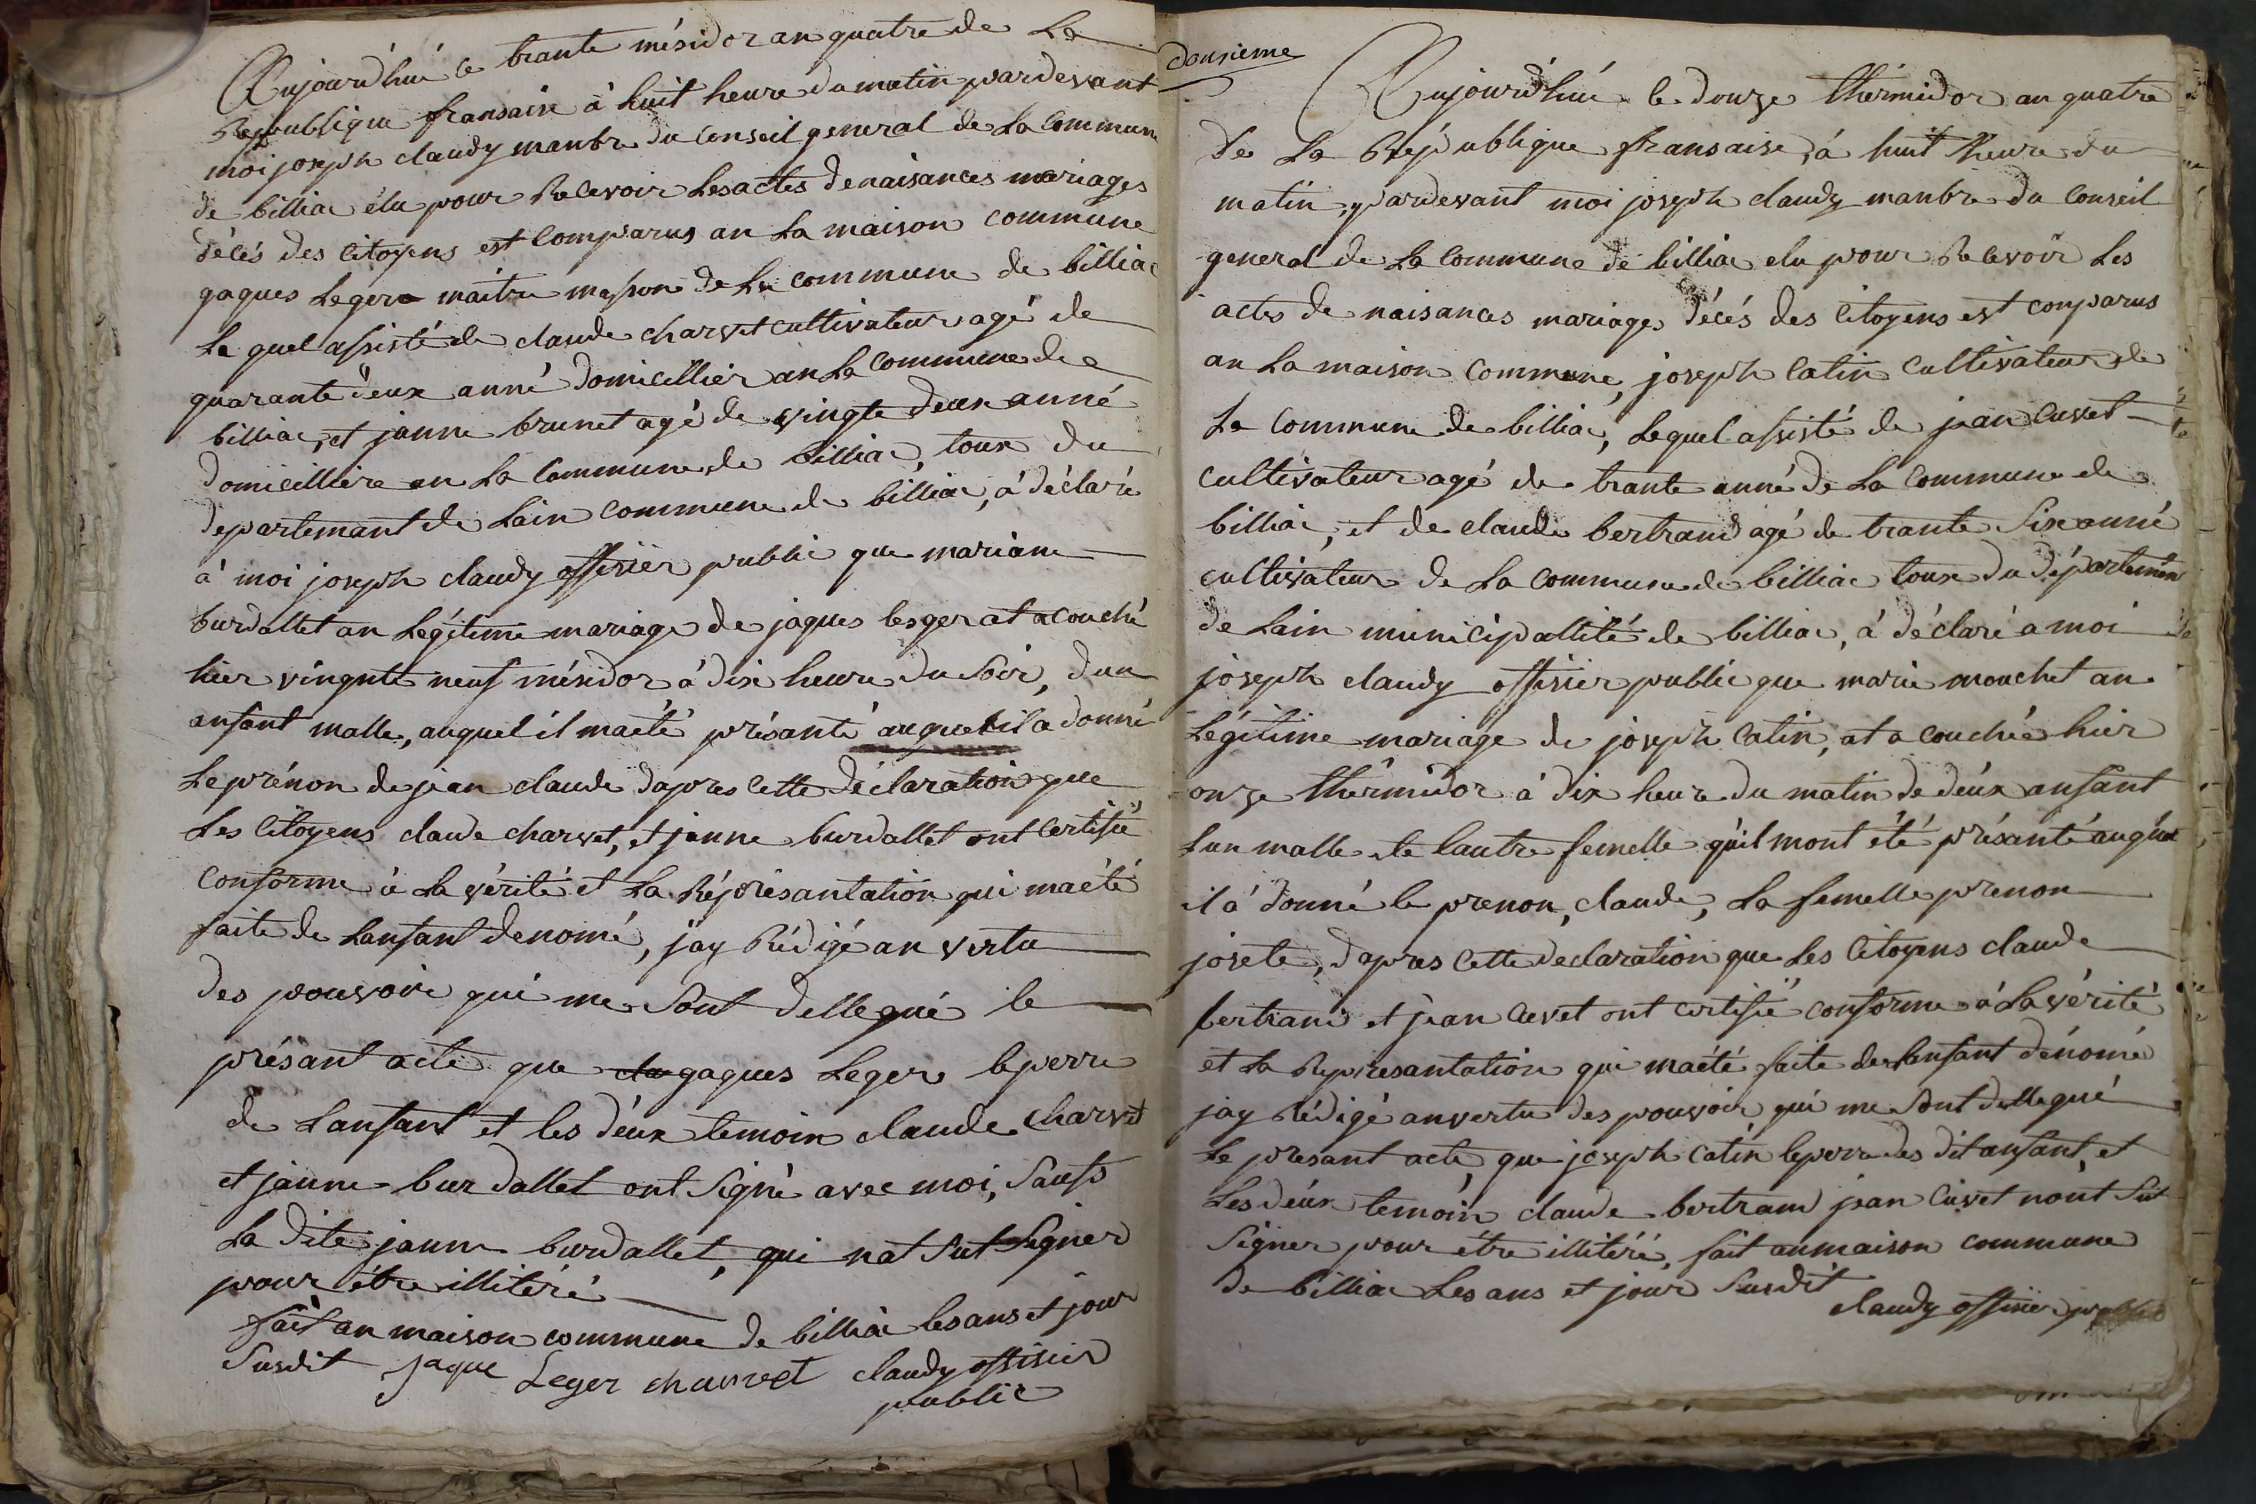 Aujourd'hui le trante mésidor an quatre de La
Republique fransaise à huit heure du matin pardevant
moi joseph claudy manbre du Conseil general de La Commune
de billia élu pour Recevoir Les actes de naisances mariages
décés des Citoyens est Comparus an La maison commune
gaques Leger maitre masson de La commune de billia
Le quel assisté de claude charvet cultivateur agé de
quarante deux anné domicillier an La Commune de
billia, et janne brunet agé de vingte deux anné
domicillière an La Commune de billia, toux du
departemant de Lain commune de billia, à déclaré
à moi joseph claudy offisier public que mariane
burdallet an Legitime mariage de jaques leger at acouché
hier vingnte neuf mésidor à dix heure du Soir, dun
anfant malle, auquel il maété présanté auquel il a donné
Le prénon de jean claude dapres Cette déclaration que
Les Citoyens claude charvet, et janne burdallet ont Certifié
Conforme à La vérité et La Réprésantation qui maété
faite de Lanfant denomé, jay Rédigé an vertu
des pouvoir qui me Sont dellegué le
présant acte que gaques Leger le perre
de Lanfant et les déux temoin claude Charvet
et janne burdallet ont Signé avec moi, Saufs
La dite janne burdallet, qui nat Sut Segner
pour être illitéré
fait an maison commune de billia les ans et jour
Susdit jaque Leger charvet claudy offisier
public
dousieme
Aujourd'hui le douze thérmidor an quatre
de La Républigue fransaise, à huit heure du
matin, pardevant moi joseph claudy manbre du Conseil
general de La Commune de billia elu pour Recevoir Les
actes de naisances mariages décés des Citoyens est conparus
an La maison Commune, joseph Catin Cultivateur de
La Commune de billia, Lequel assisté de jean Cuvet
cultivateur agé de trante anné de La Commune de
billia, et de claude bertrand agé de trante Six anné
cultivateur de La Commune de billia toux du département
de Lain municipallité de billia, à déclaré a moi
joseph claudy offisier public que marie mouchet an
Légitime mariage de joseph Catin, at a couchée hier
onze thérmidor à dix heure du matin de déux anfant
Lun malle et lautre femelle quil mont été présanté auquel
il à donné le prenon, claude, La femelle prenon
josete, dapres Cette declaration que Les Citoyens claude
bertrand et jean Cuvet ont certifié conforme à La vérité
et La Represantation qui maété faite de Lanfant dénomé
jay Rédigé an vertu des pouvoir qui me Sont dellegué
Le presant acte, que joseph Catin le perre des dit anfant, et
Les déux temoin claude bertrand jean Cuvet nont Sut
Signer pour être illitéré, fait an maison commune
de billia Les ans et jour Susdit
claudy offisier public